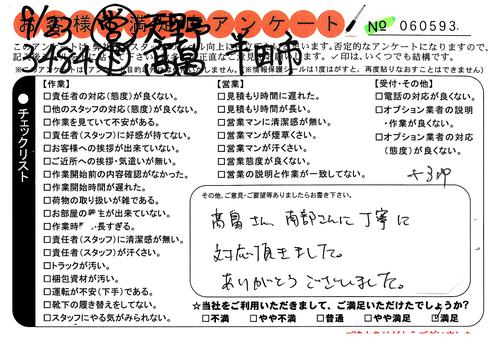 お客様満足度アンケート
№ 060593
8/23 ㊡ 天野 半田市
34842 高畠
【作業】
□責任者の対応(態度)が良くない。
□他のスタッフの対応(態度)が良くない。
□作業を見ていて不安がある。
□責任者(スタッフ)に好感が持てない。
□お客様への挨拶が出来ていない。
□ご近所への挨拶・気遣いが無い。
□作業開始前の内容確認がなかった。
□作業開始時間が遅れた。
□荷物の取り扱いが雑である。
□お部屋の養生が出来ていない。
□作業時間が長すぎる。
□責任者(スタッフ)に清潔感が無い。
□責任者(スタッフ)が汗くさい。
□トラックが汚い。
□梱包資材が汚い。
□運転が不安(下手)である。
□靴下の履き替えをしてない。
□スタッフにやる気がみられない。
【営業】
□見積もり時間に遅れた。
□見積もり時間が長い。
□営業マンに清潔感が無い。
□営業マンが煙草くさい。
□営業マンが汗くさい。
□営業態度が良くない。
□営業の説明と作業が一致してない。
【受付・その他】
□電話の対応が良くない。
□オプション業者の説明
・作業が良くない。
□オプション業者の対応
(態度)が良くない。
●チェックリスト
その他、ご意見・ご要望等ありましたらお書き下さい。
高畠さん、南部さんに丁寧に
対応頂きました。
ありがとうございました。
☆当社をご利用いただきまして、ご満足いただけたでしょうか?
□不満 □やや不満 □普通 □やや満足 ☑満足